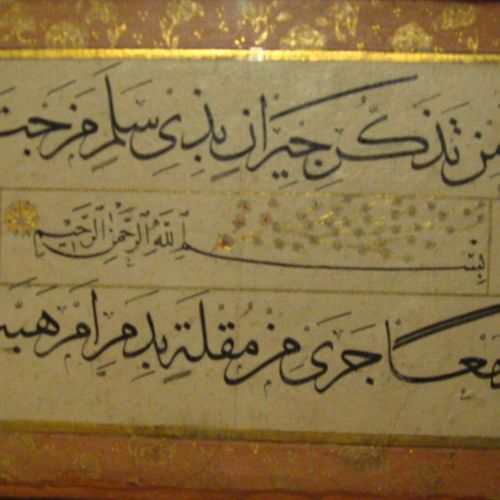 مِنْ تَذَكُّرِ جِيرَانٍ بِذِي سَلَمٍ مَزَجْتَ
بِسْمِ اللَّهِ الرَّحْمَنِ الرَّحِيمِ
مْعًا جَرَى مِنْ مُقْلَةٍ بِدَمِ اَمْ هَبَّتْ